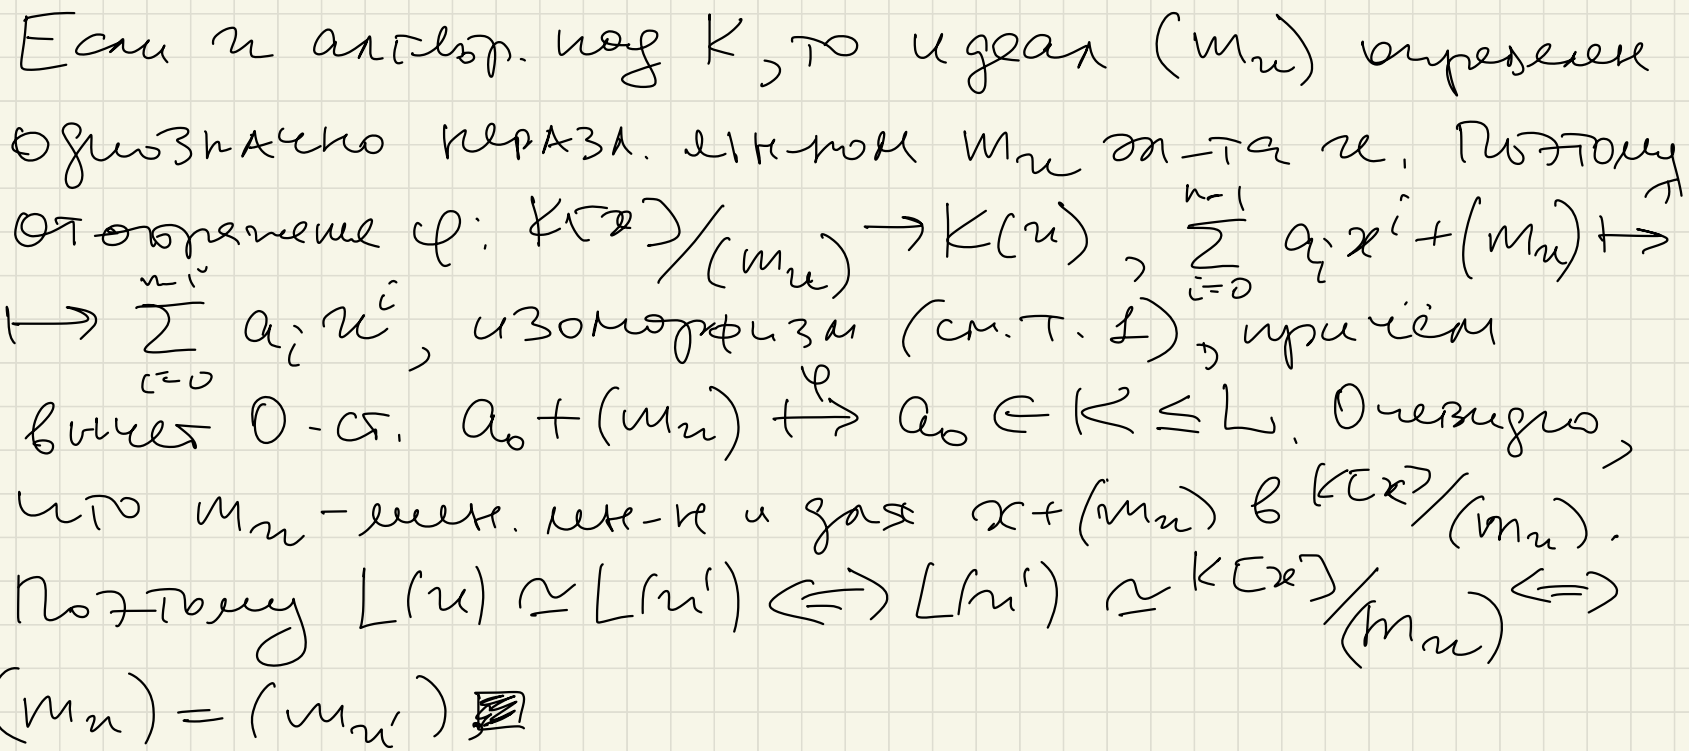 Если u алгебр. над K, то идеал (m_u) определен
однозначно неразл. мн-ном m_u эл-та u. Поэтому
отображение φ: K[x]/(m_u) → K(u), \sum_{i=0}^{n-1} a_i x^i + (m_u) ↦
↦ \sum_{i=0}^{n-1} a_i u^i, изоморфизм (см. т. 1), причём
вычет 0-ст. a_0 + (m_u) \overset{φ}{↦} a_0 ∈ K ≤ L. Очевидно,
что m_u - мин. мн-н и для x + (m_u) в K[x]/(m_u).
Поэтому L(u) ≃ L(u') ⟺ L(u') ≃ K[x]/(m_u) ⟺
(m_u) = (m_{u'})